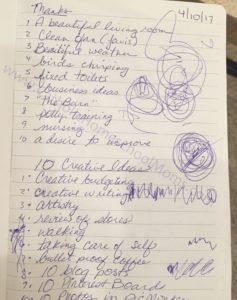 Thanks
4/10/17
1 A beautiful living room
2 Clean Gym (Javis)
3 Beautiful weather
4 birds chirping
5 fixed toilets
6 business ideas
7 "The Barn"
8 potty training
9 nursing
10 a desire to improve
10 Creative Ideas:
1 Creative budgeting
2 creative writing
3 artistry
4 review of stores
5 walking
6 taking care of self
7 bullet proof coffee
8 10 blog posts
9 10 Pinterest Board
10 10 Photos in